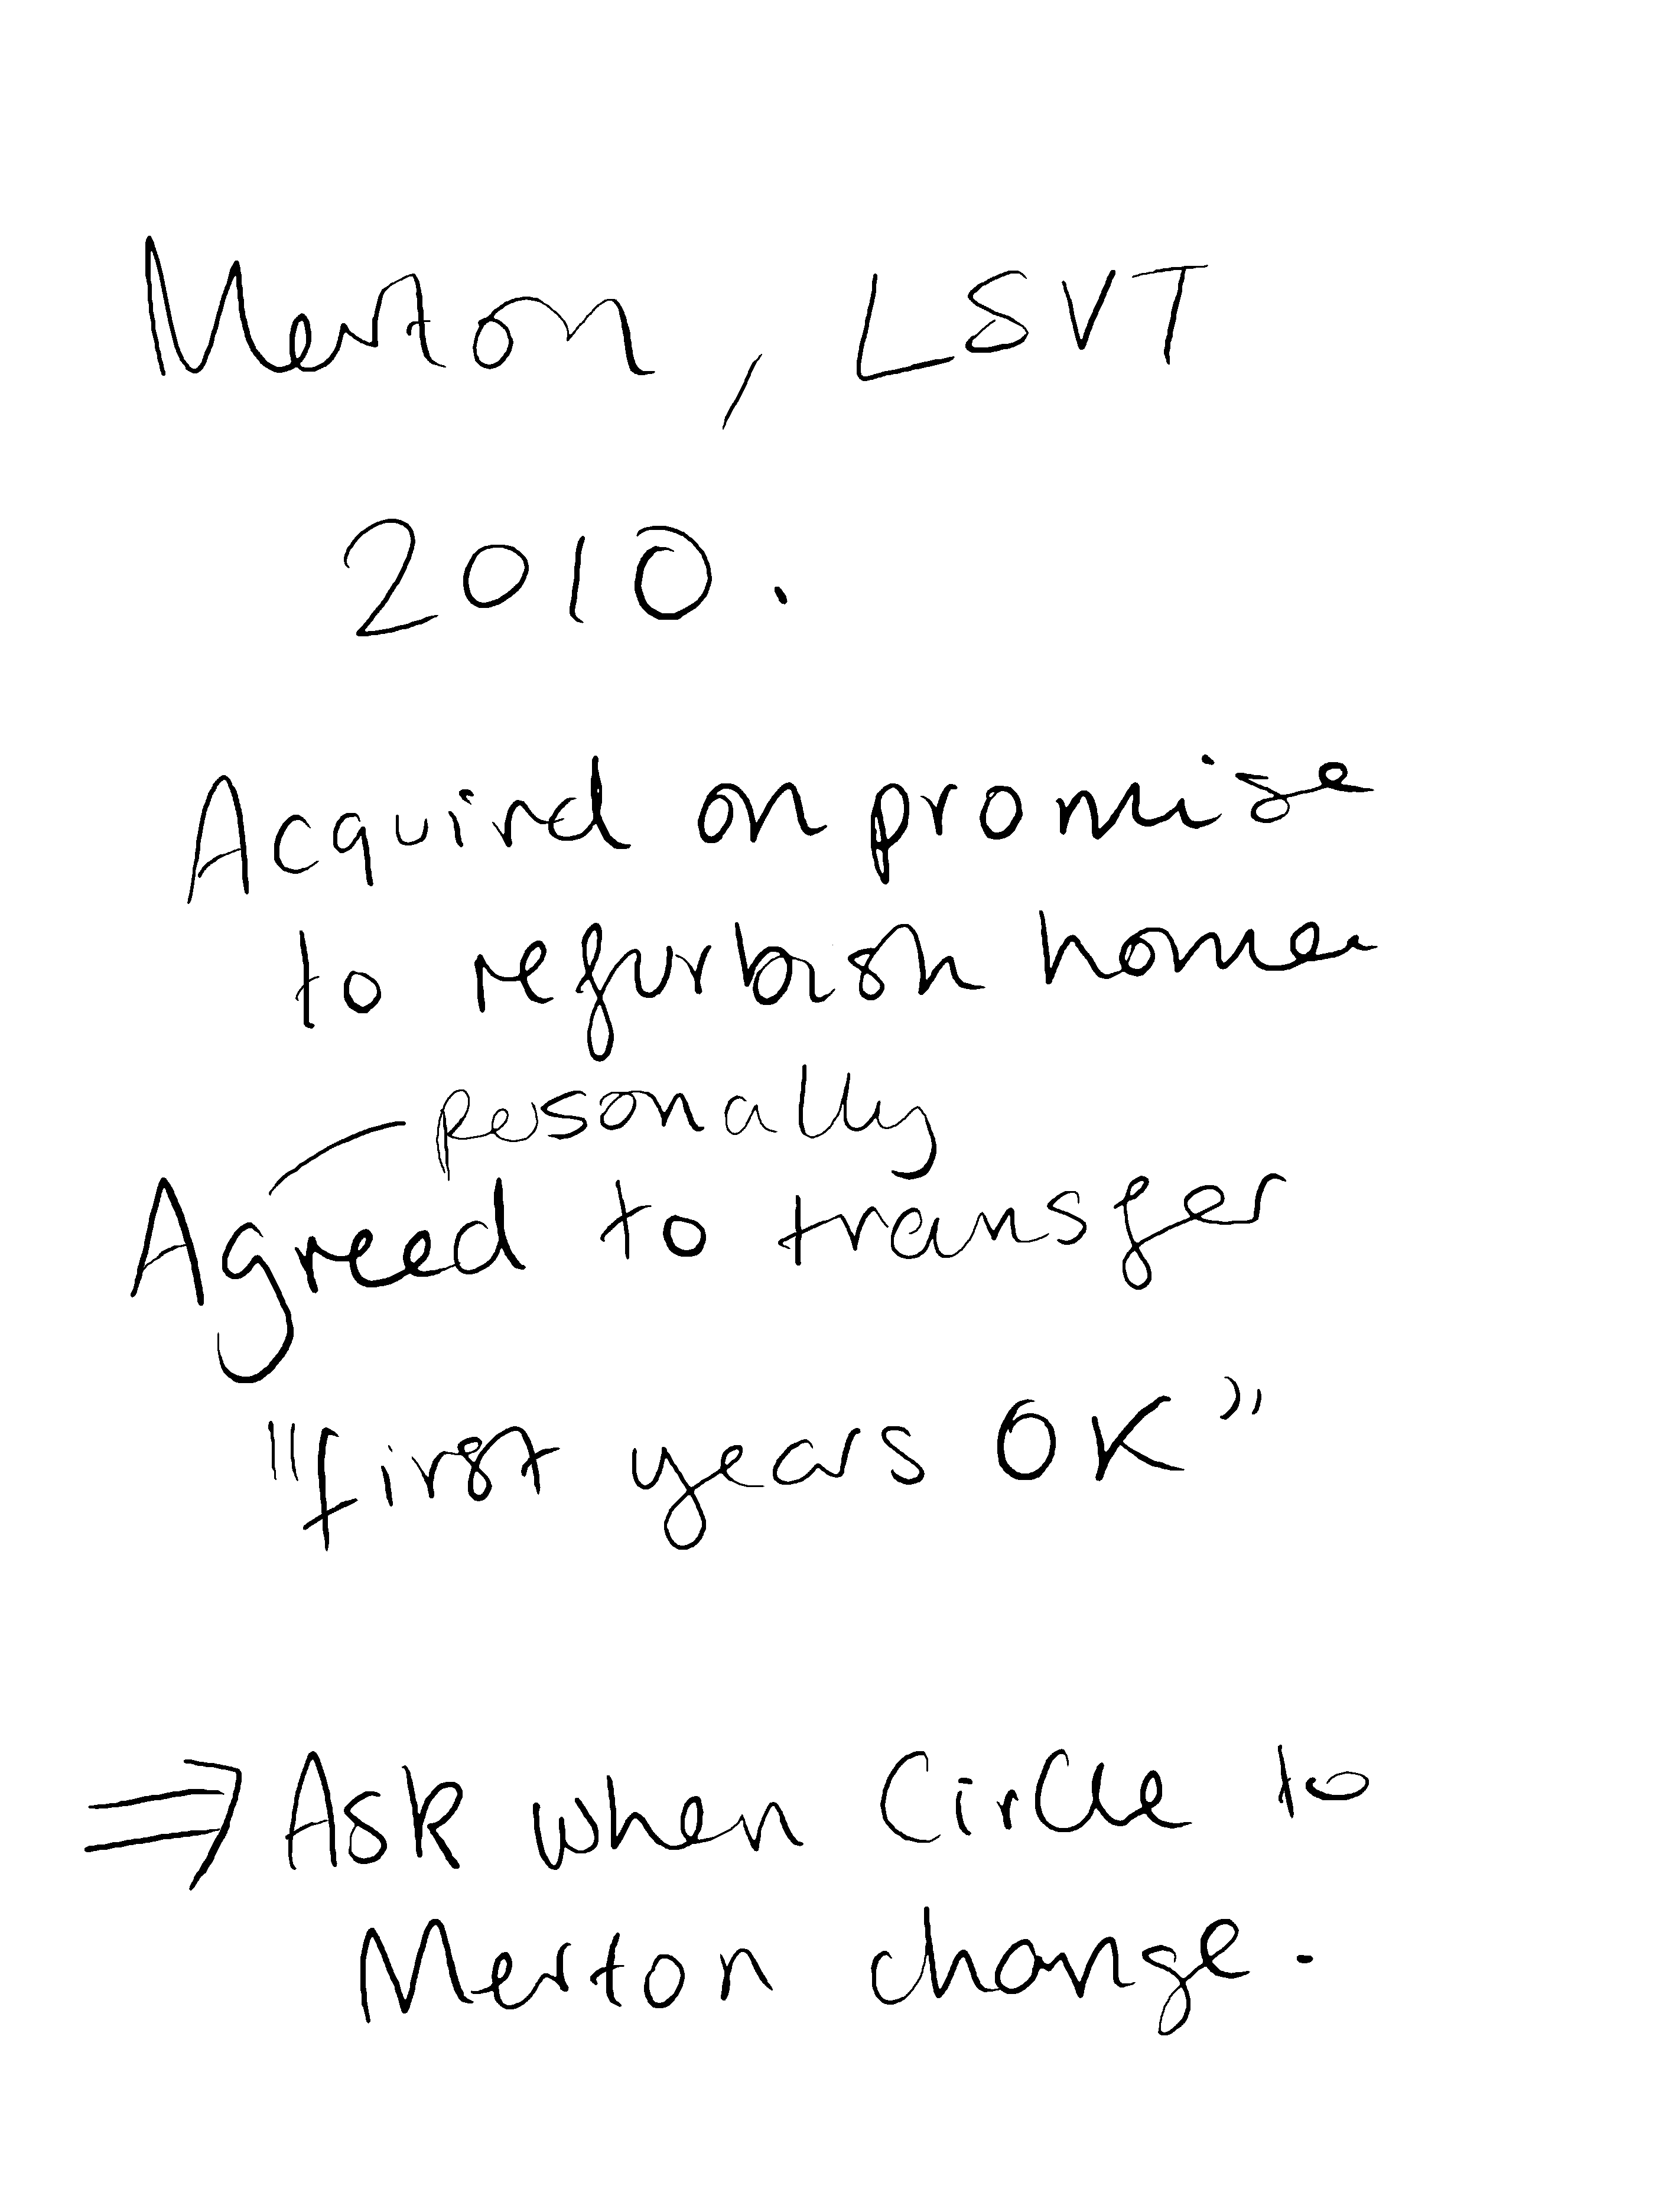 Merton, LSVT
2010.
Acquired on promise
to refurbish homes
personally
Agreed to transfer
"first years OK"
⇒ Ask when Circle to
Merton change.